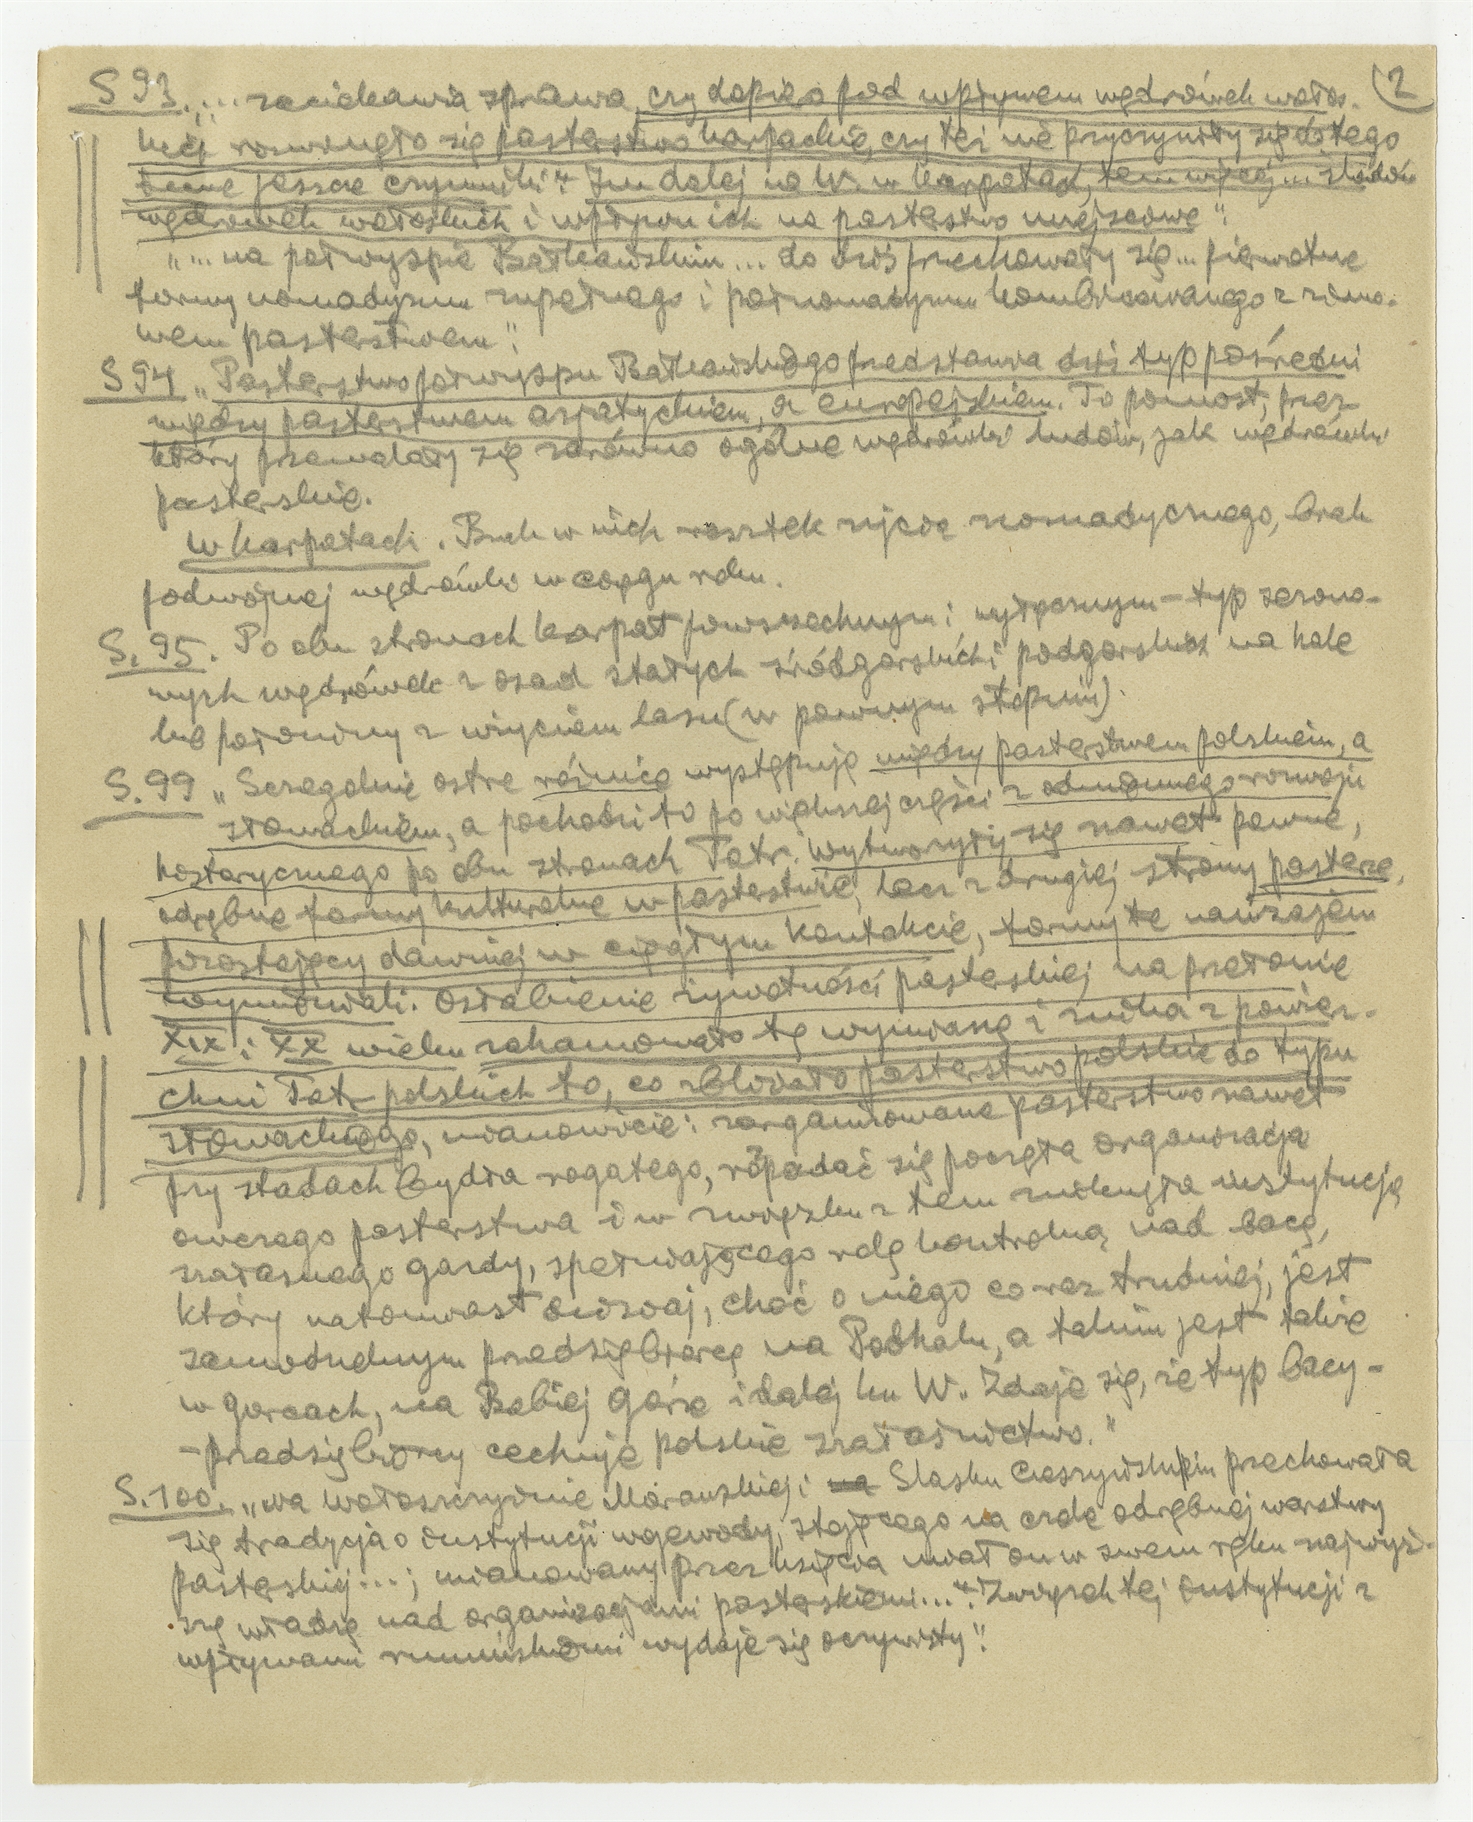 2
S 93.... zaciekawia sprawa, czy dopiero pod wpływem wędrówek wołos-
kiej rozwinęło się pasterstwo karpackie, czy też nie przyczyniły się do tego
inne jeszcze czynniki". Im dalej na W. w Karpatach, tem więcej... śladów
wędrówek wołoskich i wpływu ich na pasterstwo miejscowe".
"... na półwyspie Bałkańskim... do dziś przechowały się... pierwotne
formy nomadyzmu zupełnego i półnomadyzmu kombinowanego z zimo-
wem pasterstwem".
S 94 "Pasterstwo półwyspu Bałkańskiego przedstawia dziś typ pośredni
między pasterstwem azjatyckiem, a europejskiem. To pomost, przez
który przewalały się zarówno ogólne wędrówki ludów, jak wędrówki
pasterskie.
W Karpatach. Brak w nich resztek życia nomadycznego, brak
podwójnej wędrówki w ciągu roku.
S. 95. Po obu stronach Karpat powszechnym i wyłącznym - typ sezono-
wych wędrówek z osad stałych śródgórskich i podgórskich na hale
lub połoniny z użyciem lasu (w pewnym stopniu).
S. 99 "Szczególnie ostre różnice występuje między pasterstwem polskiem, a
słowackiem, a pochodzi to po większej części z odmiennego rozwoju
historycznego po obu stronach Tatr. Wytworzyły się nawet pewne,
odrębne formy kulturalne w pasterstwie, lecz z drugiej strony pasterze,
pozostający dawniej w ciągłym kontakcie, formy te nawzajem
wymieniali. Osłabienie żywotności pasterskiej na przełomie
XIX i XX wieku zahamowało tę wymianę i znika z powierz-
chni Tatr polskich to, co zbliżało pasterstwo polskie do typu
słowackiego, mianowicie: zorganizowane pasterstwo nawet
przy stadach bydła rogatego, rozpadać się poczęła organizacja
owczego pasterstwa i w związku z tem zniknęła instytucja
szałaśnego gazdy, spełniającego rolę kontrolną nad bacą,
który natomiast dzisiaj, choć o niego coraz trudniej, jest
samodzielnym przedsiębiorcą na Podhalu, a takim jest także
w Gorcach, na Babiej Górze i dalej ku W. Zdaje się, że typ bacy-
-przedsiębiorcy cechuje polskie szałaśnictwo."
S. 100. "na Wołoszczyźnie Morawskiej i na Śląsku Cieszyńskim przechowała
się tradycja o instytucji wojewody, stojącego na czele odrębnej warstwy
pasterskiej...; mianowany przez księcia miał on w swem ręku najwyż-
szą władzę nad organizacjami pasterskiemi...". Związek tej instytucji z
wpływami rumuńskiemi wydaje się oczywisty".